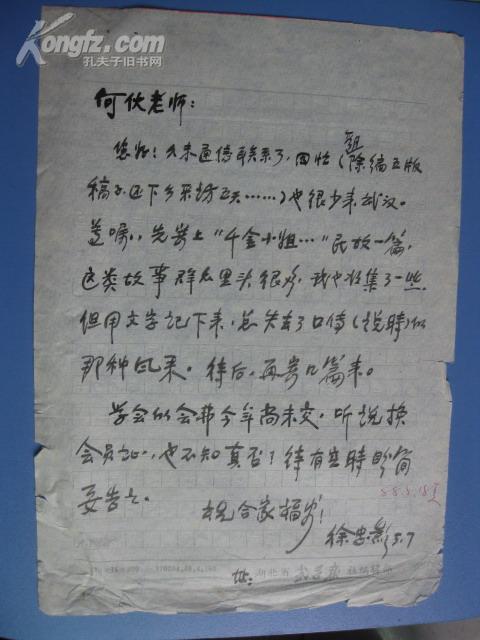 Kongfz.com
孔夫子旧书网
何伙老师：
您好！久未通信联系了，因忙（除编五版
组稿子还下乡采访五天……）也很少来武汉。
遵嘱，先寄上“千金小姐…”民故一篇，
这类故事群众里头很多，我也收集了一些，
但用文字记下来，总失去了口传（说时）的
那种风采。待后，再寄几篇来。
学会的会费今年尚未交，听说换
会员证，也不知真否？待有空时盼简
要告之。
88.5.18
祝合家福安！
徐忠 5.7
址：湖北省